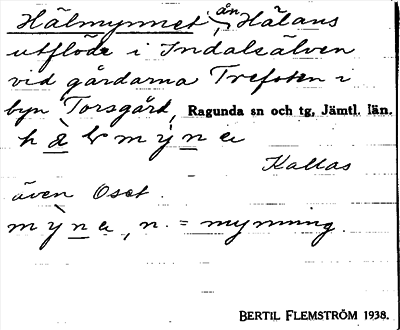 Hälmynnet, ån Hälans
utflöde i Indalsälven
vid gårdarna Trefoten i
byn Torsgård, Ragunda sn och tg, Jämtl. län.
Kallas
även Oset.
n. = mynning.
BERTIL FLEMSTRÖM 1938.